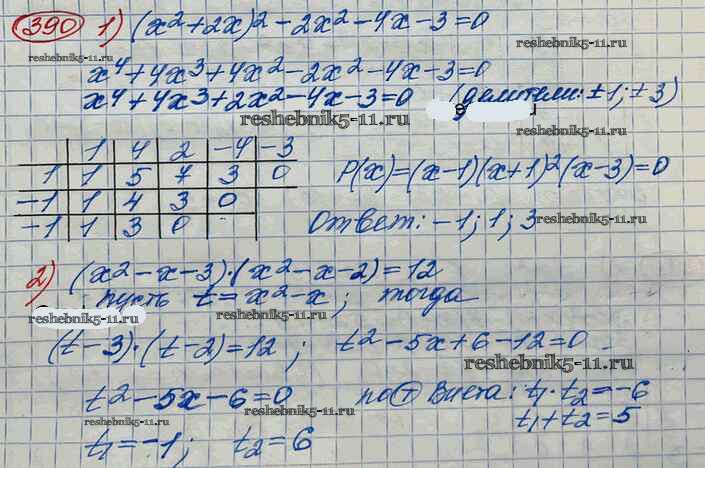 390 1) (x² + 2x)² - 2x² - 4x - 3 = 0
reshebnik5-11.ru
x⁴ + 4x³ + 4x² - 2x² - 4x - 3 = 0
x⁴ + 4x³ + 2x² - 4x - 3 = 0 (делители: ±1; ±3)
reshebnik5-11.ru
1 4 2 -4 -3
1 1 5 7 3 0
-1 1 4 3 0
-1 1 3 0
P(x) = (x-1)(x+1)²(x-3) = 0
Ответ: -1; 1; 3
reshebnik5-11.ru
2) (x² - x - 3)·(x² - x - 2) = 12
пусть t = x² - x; тогда
reshebnik5-11.ru reshebnik5-11.ru
(t - 3)·(t - 2) = 12; t² - 5x + 6 - 12 = 0
reshebnik5-11.ru
t² - 5x - 6 = 0 по Т Виета: t₁·t₂ = -6
reshebnik5-11.ru
t₁ + t₂ = 5
t₁ = -1; t₂ = 6
reshebnik5-11.ru
reshebnik5-11.ru